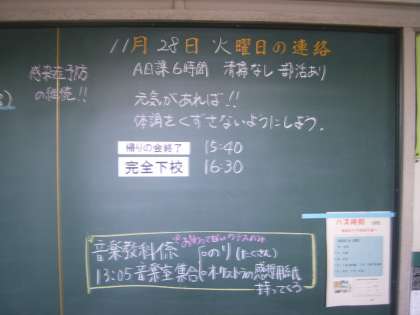 11月28日 火曜日の連絡
感染症予防
の継続!!
AB課6時間 清掃なし 部活あり
元気があれば!!
体調をくずさないようにしよう.
帰りの会終了 15:40
完全下校 16:30
音楽教科係
のり(たくさん)
13:05音楽室集合
オーケストラの感想用紙
持ってこう
バス時刻